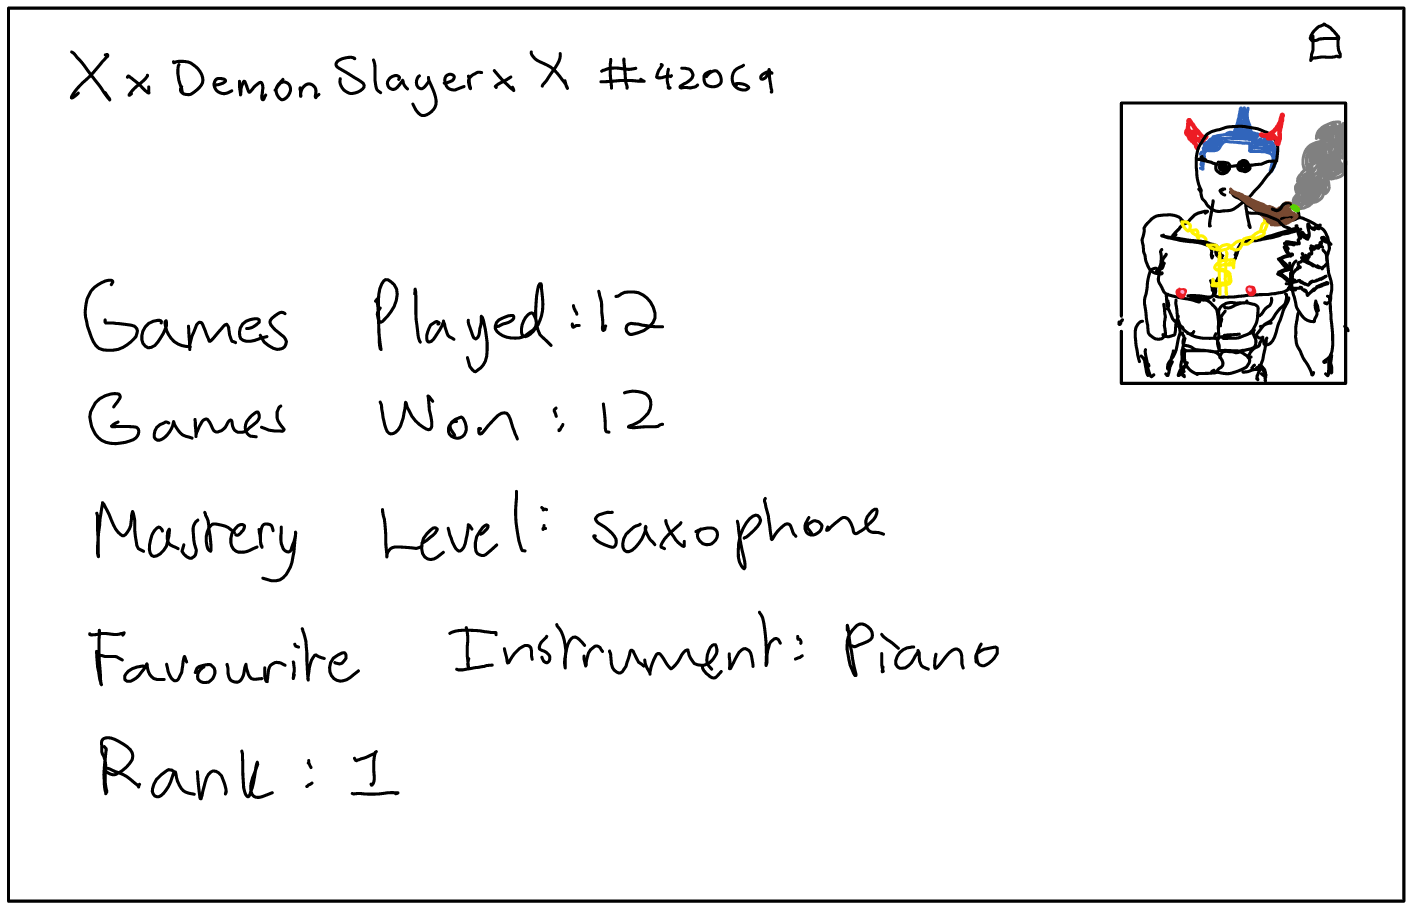 XxDemonSlayerxX #42069
Games Played: 12
Games Won: 12
Mastery Level: saxophone
Favourite Instrument: Piano
Rank: 1
$